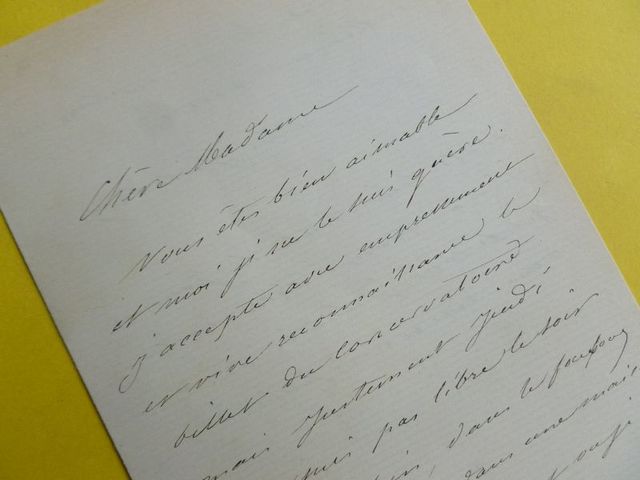 Chère Madame
Vous êtes bien aimable
et moi je ne le suis guère.
J'accepte avec empressement
et vive reconnaissance le
billet du conservatoire
mais justement jeudi
suis pas libre le soir
dans le faubourg
dans une mai